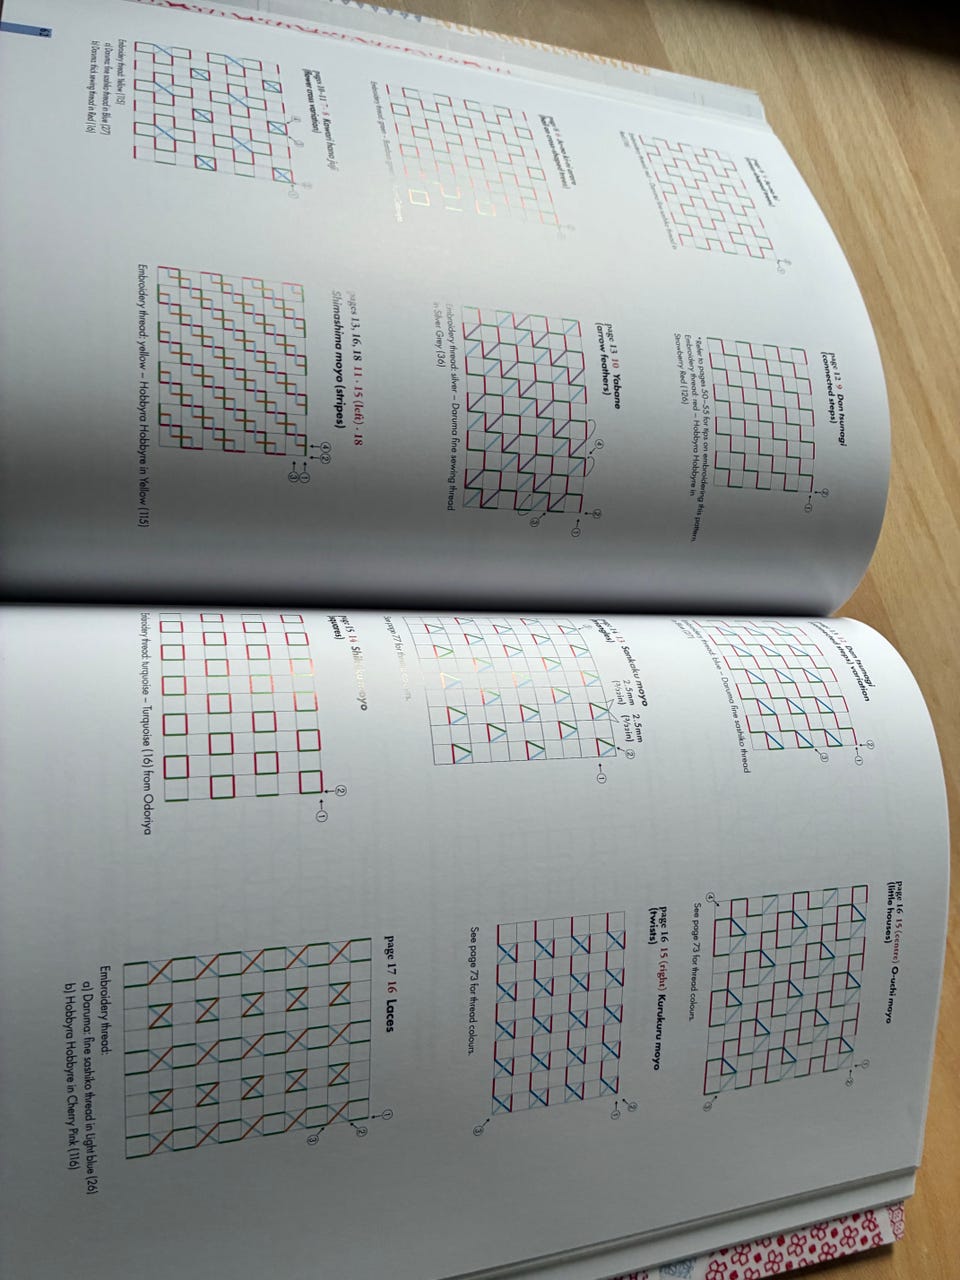 (cross-shaped trees)
page 12 9 Dan tsunagi
(connected steps)
*Refer to pages 50–55 for tips on embroidering this pattern.
Embroidery thread: red – Hobbyra Hobbyre in
Strawberry Red (126)
page 13 10 Yabane
(arrow feathers)
Embroidery thread: silver – Daruma fine sewing thread
in Silver Grey (36)
pages 10–11 7 · 8 Kawari hana juji
(flower cross variation)
Embroidery thread: Yellow (115)
a) Daruma: fine sashiko thread in Blue (27)
b) Daruma: thick sewing thread in Red (16)
pages 13, 16, 18 11 · 15 (left) · 18
Shimashima moyo (stripes)
Embroidery thread: yellow – Hobbyra Hobbyre in Yellow (115)
Dan tsunagi
(connected steps) variation
Embroidery thread: blue – Daruma fine sashiko thread
in Blue (27)
page 16 15 (centre) O-uchi moyo
(little houses)
See page 73 for thread colours.
page 14 13 Sankaku moyo
(triangles)
2.5mm 2.5mm
(3/32in) (3/32in)
See page 77 for
page 16 15 (right) Kurukuru moyo
(twists)
See page 73 for thread colours.
page 15 14
(squares)
Embroidery thread: turquoise – Turquoise (16) from Odoriya
page 17 16 Laces
Embroidery thread:
a) Daruma: fine sashiko thread in Light blue (26)
b) Hobbyra Hobbyre in Cherry Pink (116)